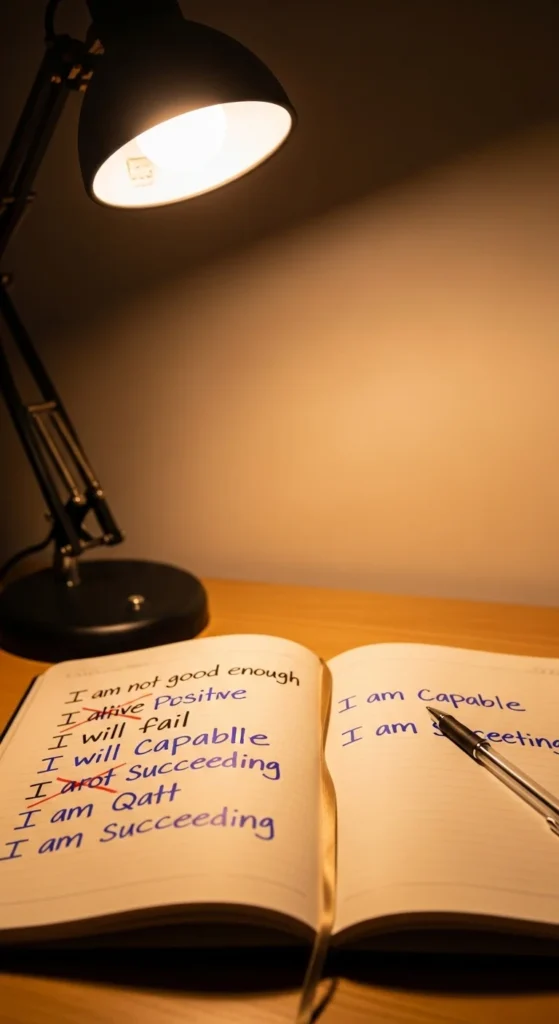 I am not good enough
I allive Positive
I will fail
I will Capablle
I arot Succeeding
I am Qatt
I am Succeeding
I am Capable
I am